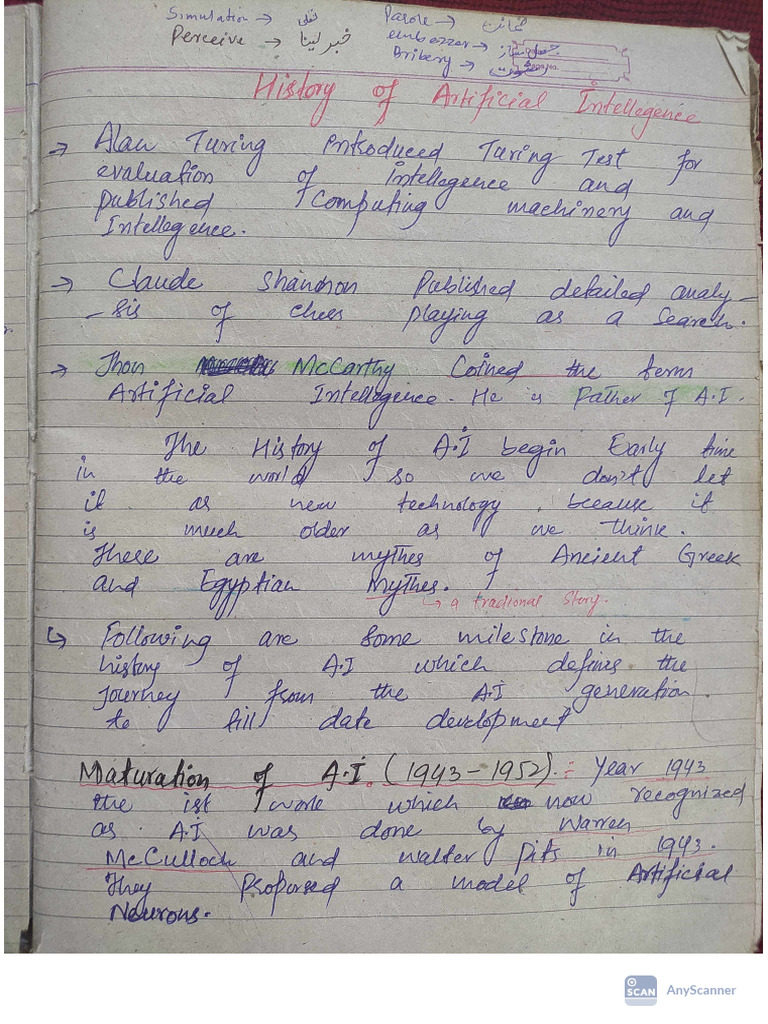 Simulation → نقلی
Perceive → خبر لینا
Parole → ضمانت
embezzer → جعل ساز
Bribery → رشوت
History of Artificial Intellegence
→ Alan Turing entroduced Turing Test for
evaluation of intellegence and
published Computing machinery and
Intellegence.
→ Claude Shannon Published detailed analy-
-sis of chees playing as a search.
→ Jhon McCarthy Coined the term
Artificial Intellegence. He is Father of A.I.
The History of A.I begin Early time
in the world so we don't let
it as new technology, because it
is much older as we think.
These are mythes of Ancient Greek
and Egyptian Mythes.
↳ a tradional story.
↳ Following are some milestone in the
history of A.I which defines the
journey from the A.I generation
to till date development
Maturation of A.I. (1943-1952).:- Year 1943
the ist work which now recognized
as A.I was done by Warren
McCulloch and walter pits in 1943.
They Proporsed a model of Artificial
Neurons.
SCAN AnyScanner